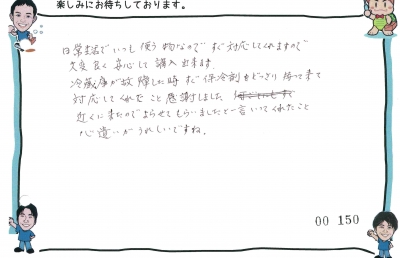 楽しみにお待ちしております。
日常生活でいつも使う物なのですぐ対応してくれますので
大変良く安心して購入出来ます
冷蔵庫が故障した時すぐ保冷剤をどっさり持って来て
対応してくれたこと感謝しました
近くに来たのでよらせてもらいましたと一言いてくれたこと
心遣いがうれしいですね。
00 150